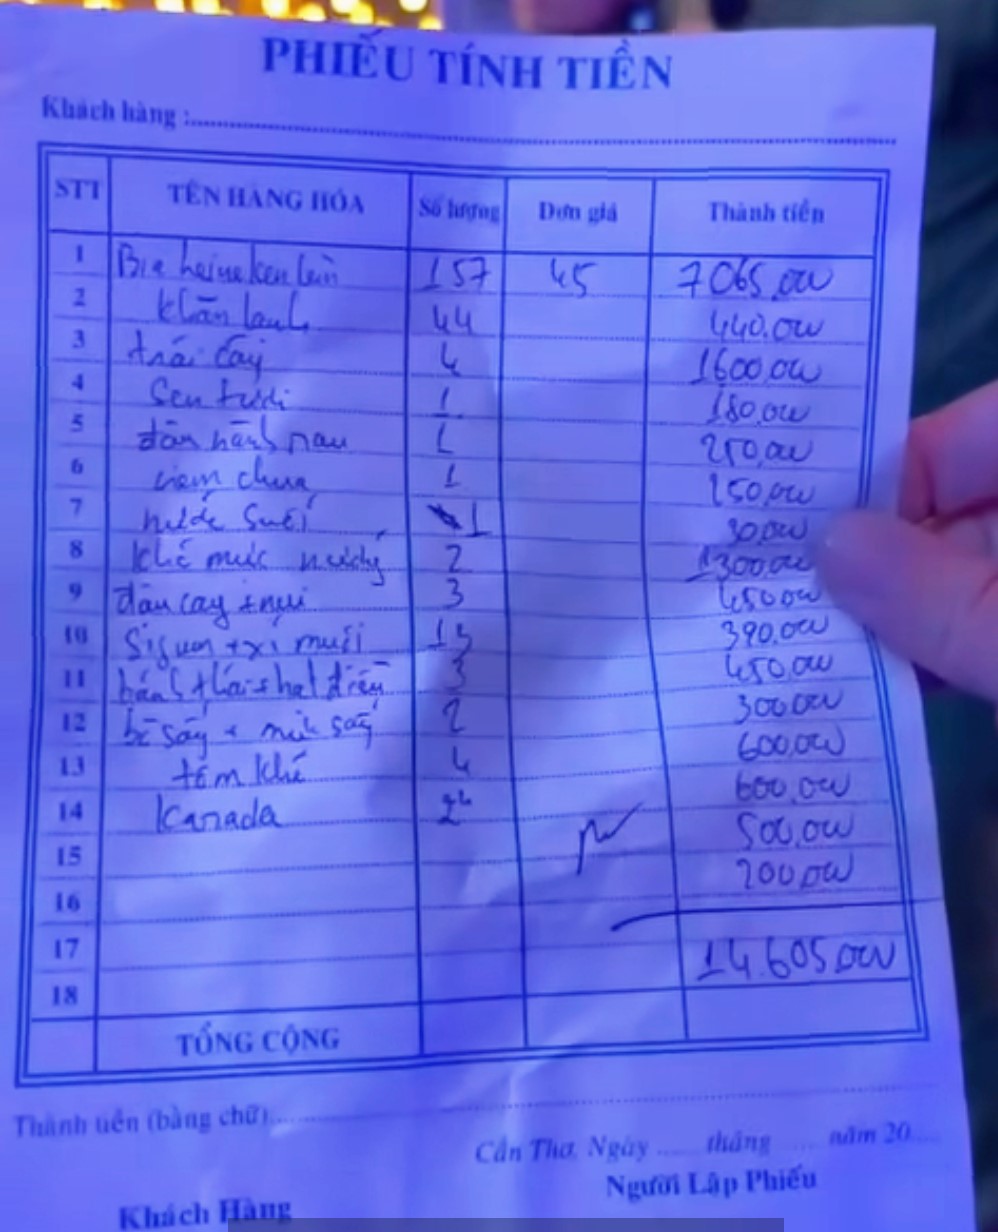 PHIẾU TÍNH TIỀN
Khách hàng :
STT TÊN HÀNG HÓA Số lượng Đơn giá Thành tiền
1 Bia heineken lùn 157 45 7065.000
2 khăn lạnh 44 440.000
3 trái cây 4 1600.000
4 Sen tươi 1 180.000
5 1 250.000
6 nem chua 1 150.000
7 nước suối 1 30.000
8 khô mực nướng 2 1300.000
9 3 450.000
10 xí muội 13 390.000
11 3 450.000
12 bò sấy + mực sấy 2 300.000
13 tôm khô 4 600.000
14 Kanada 24 600.000
15 500.000
16 200.000
17 14.605.000
18
TỔNG CỘNG
Thành tiền (bằng chữ):
Cần Thơ, Ngày tháng năm 20
Người Lập Phiếu
Khách Hàng